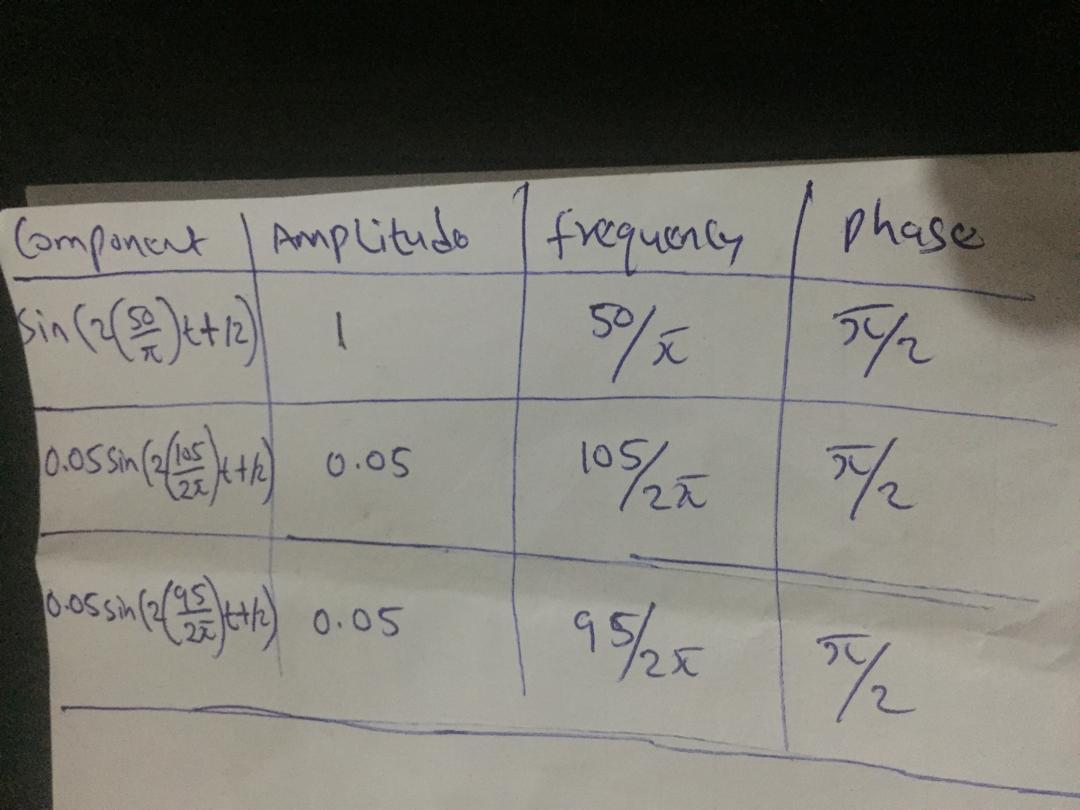 Component Amplitude frequency phase
Sin(2(50/π)t+/2) 1 50/π π/2
0.05 Sin(2(105/2π)t+/2) 0.05 105/2π π/2
0.05 sin(2(95/2π)t+/2) 0.05 95/2π π/2